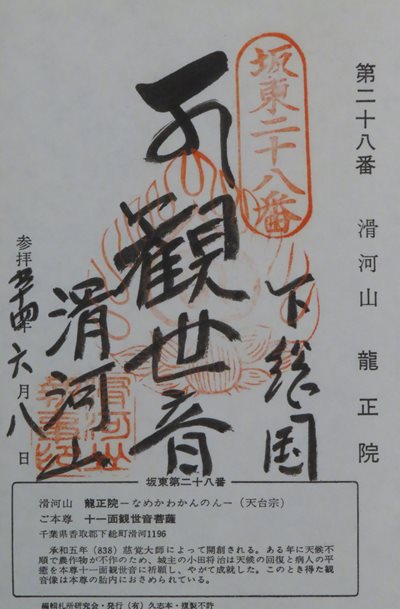 第二十八番　滑河山　龍正院
坂東二十八番
下総国
観世音
滑河山
参拝 五十四年六月八日
坂東第二十八番
滑河山　龍正院－なめかわかんのん－（天台宗）
ご本尊　十一面観世音菩薩
千葉県香取郡下総町滑河1196
承和五年（838）慈覚大師によって開創される。ある年に天候不
順で農作物が不作のため、城主の小田将治は天候の回復と病人の平
癒を本尊十一面観世音に祈願し、やがて成就した。このとき得た観
音像は本尊の胎内におさめられている。
編輯札所研究会・発行（有）久志本・複製不許